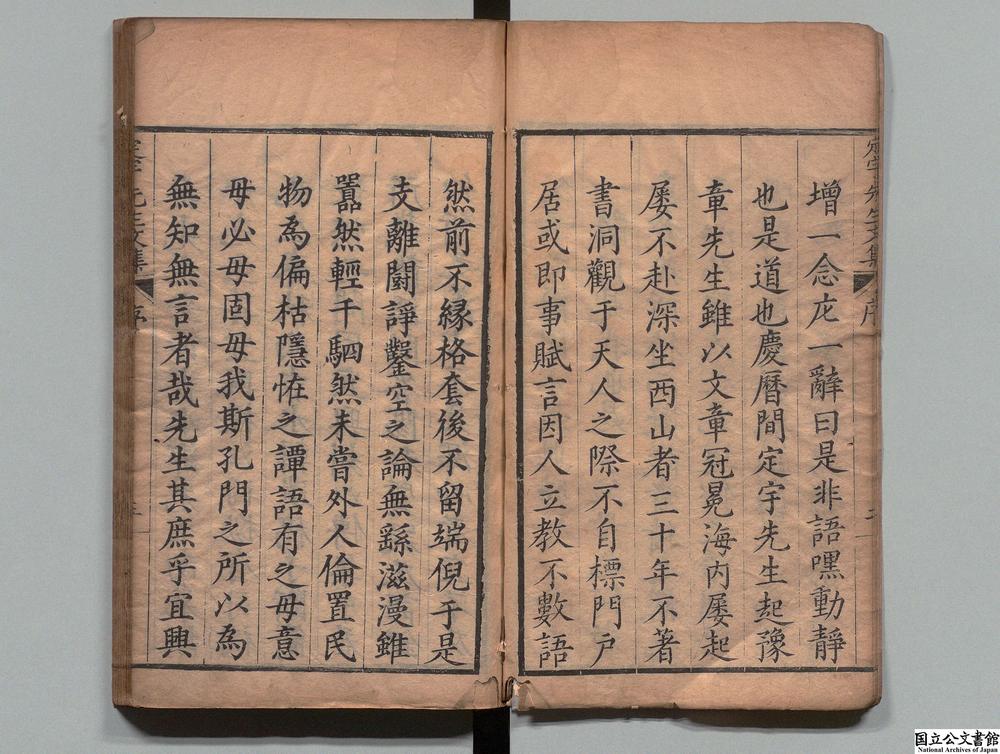 增一念庀一辭曰是非語嘿動靜
也是道也慶曆間定宇先生起豫
章先生雖以文章冠冕海内屡起
屡不赴深坐西山者三十年不著
書洞觀于天人之際不自標門戶
居或即事賦言因人立教不數語
然前不緣格套後不留端倪于是
支離闘諍鑿空之論無繇滋漫雖
囂然輕千駟然未嘗外人倫置民
物為偏枯隱怪之譚語有之毋意
毋必毋固毋我斯孔門之所以為
無知無言者哉先生其庶乎宜興
定宇先生文集
序
国立公文書館
National Archives of Japan